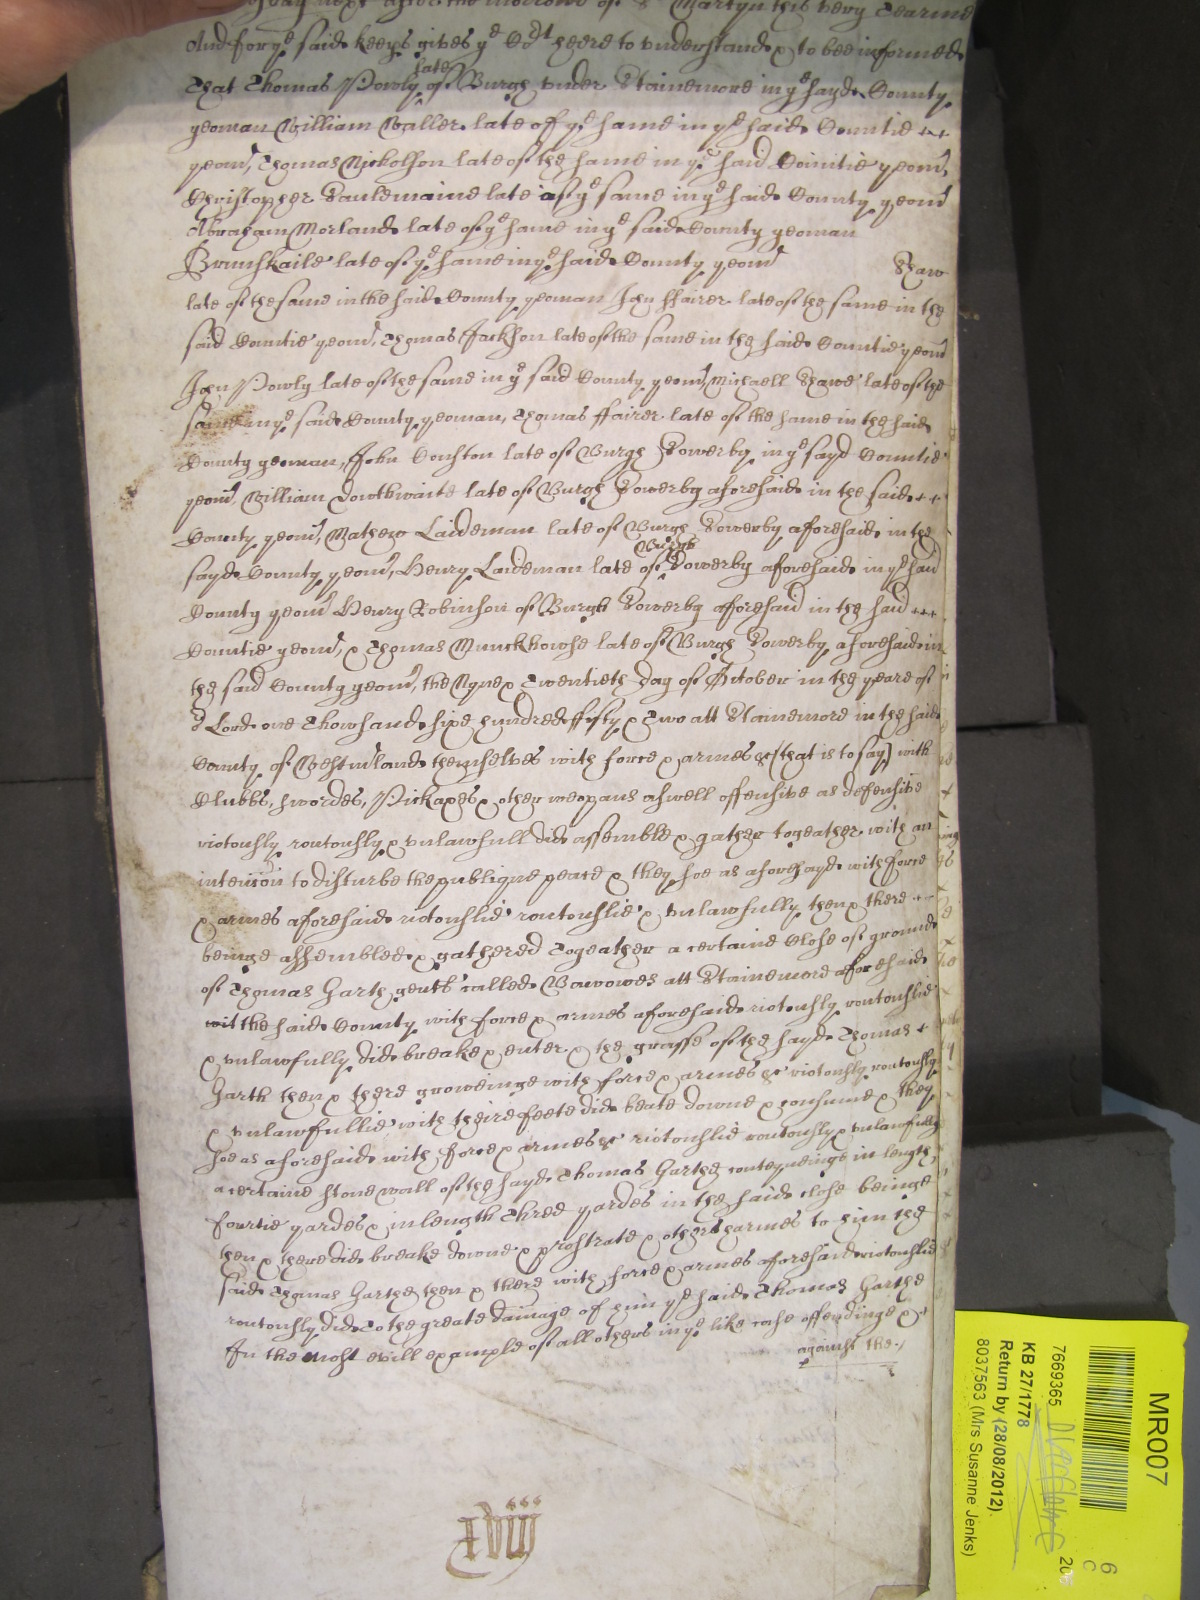 next after the morrow of St Martyn this very Tearme
And for ye said keeps gives ye Crt heere to understand & to bee informed
That Thomas Powly late of Burgh under Stainemore in ye sayd County
yeoman William Waller late of ye same in ye said Countie
yeom, Thomas Nickolson late of the same in ye said Countie yeom,
Christopher Tauldmaine late of ye same in ye said County yeom
Abraham Morland late of ye same in ye said County yeoman
Brunskaile late of ye same in ye said County yeom Shaw
late of the same in the said County yeoman John ffairer late of the same in the
said Countie yeom, Thomas Jackson late of the same in the said Countie yeom
John Powly late of the same in ye said County yeom, Michaell Shawe late of the
same in ye said County yeoman, Thomas ffairer late of the same in the said
County yeoman, John Coulston late of Burgh Sowerby in ye sayd Countie
yeom, William Dowthwaite late of Burgh Sowerby aforesaid in the said
County yeom, Mathew Laideman late of Burgh Sowerby aforesaid in the
sayd County yeom, Henry Laideman late of Burgh Sowerby aforesaid in ye said
County yeom Henry Robinson of Burgh Sowerby aforesaid in the said
Countie yeom, & Thomas Munkhowse late of Burgh Sowerby aforesaid in
the said County yeom, the Nyne & Twentieth day of October in the yeare of
Lord one Thowsand sixe hundred fifty & Two att Stainemore in the said
County of Westmland themselves with force & armes &c (that is to say) with
Clubbs, swordes, Pickaxes & other weapans aswell offensive as defensive
riotously routously & unlawfull did assemble & gather togeather with an
intencion to disturbe the publique peace & they soe as aforesayd with force
& armes aforesaid riotouslie routouslie & unlawfully then & there
beinge assembled & gathered Togeather a certaine Close of ground
of Thomas Garth gent called Bowowes att Stainemore aforesaid
wit the said County with force & armes aforesaid riotously routouslie
& unlawfully did breake & enter & the grasse of the sayd Thomas
Garth then & there groweinge with force & armes &c riotously routously
& unlawfullie with theire feete did beate downe & consume & they
soe as aforesaid with force & armes &c riotouslie routously & unlawfully
a certaine stone wall of the sayd Thomas Garthe conteyneinge in length
fourtie yardes & in length Three yardes in the said close beinge
then & there did breake downe & prostrate & other harmes to him the
said Thomas Garthe then & there with force & armes aforesaid riotouslie
routously did To the greate damage of him ye said Thomas Garthe
In the most evill example of all others in ye like case offendinge &
against the
MR007
6
C
7669365
KB 27/1778
Return by (28/08/2012)
8037563 (Mrs Susanne Jenks)